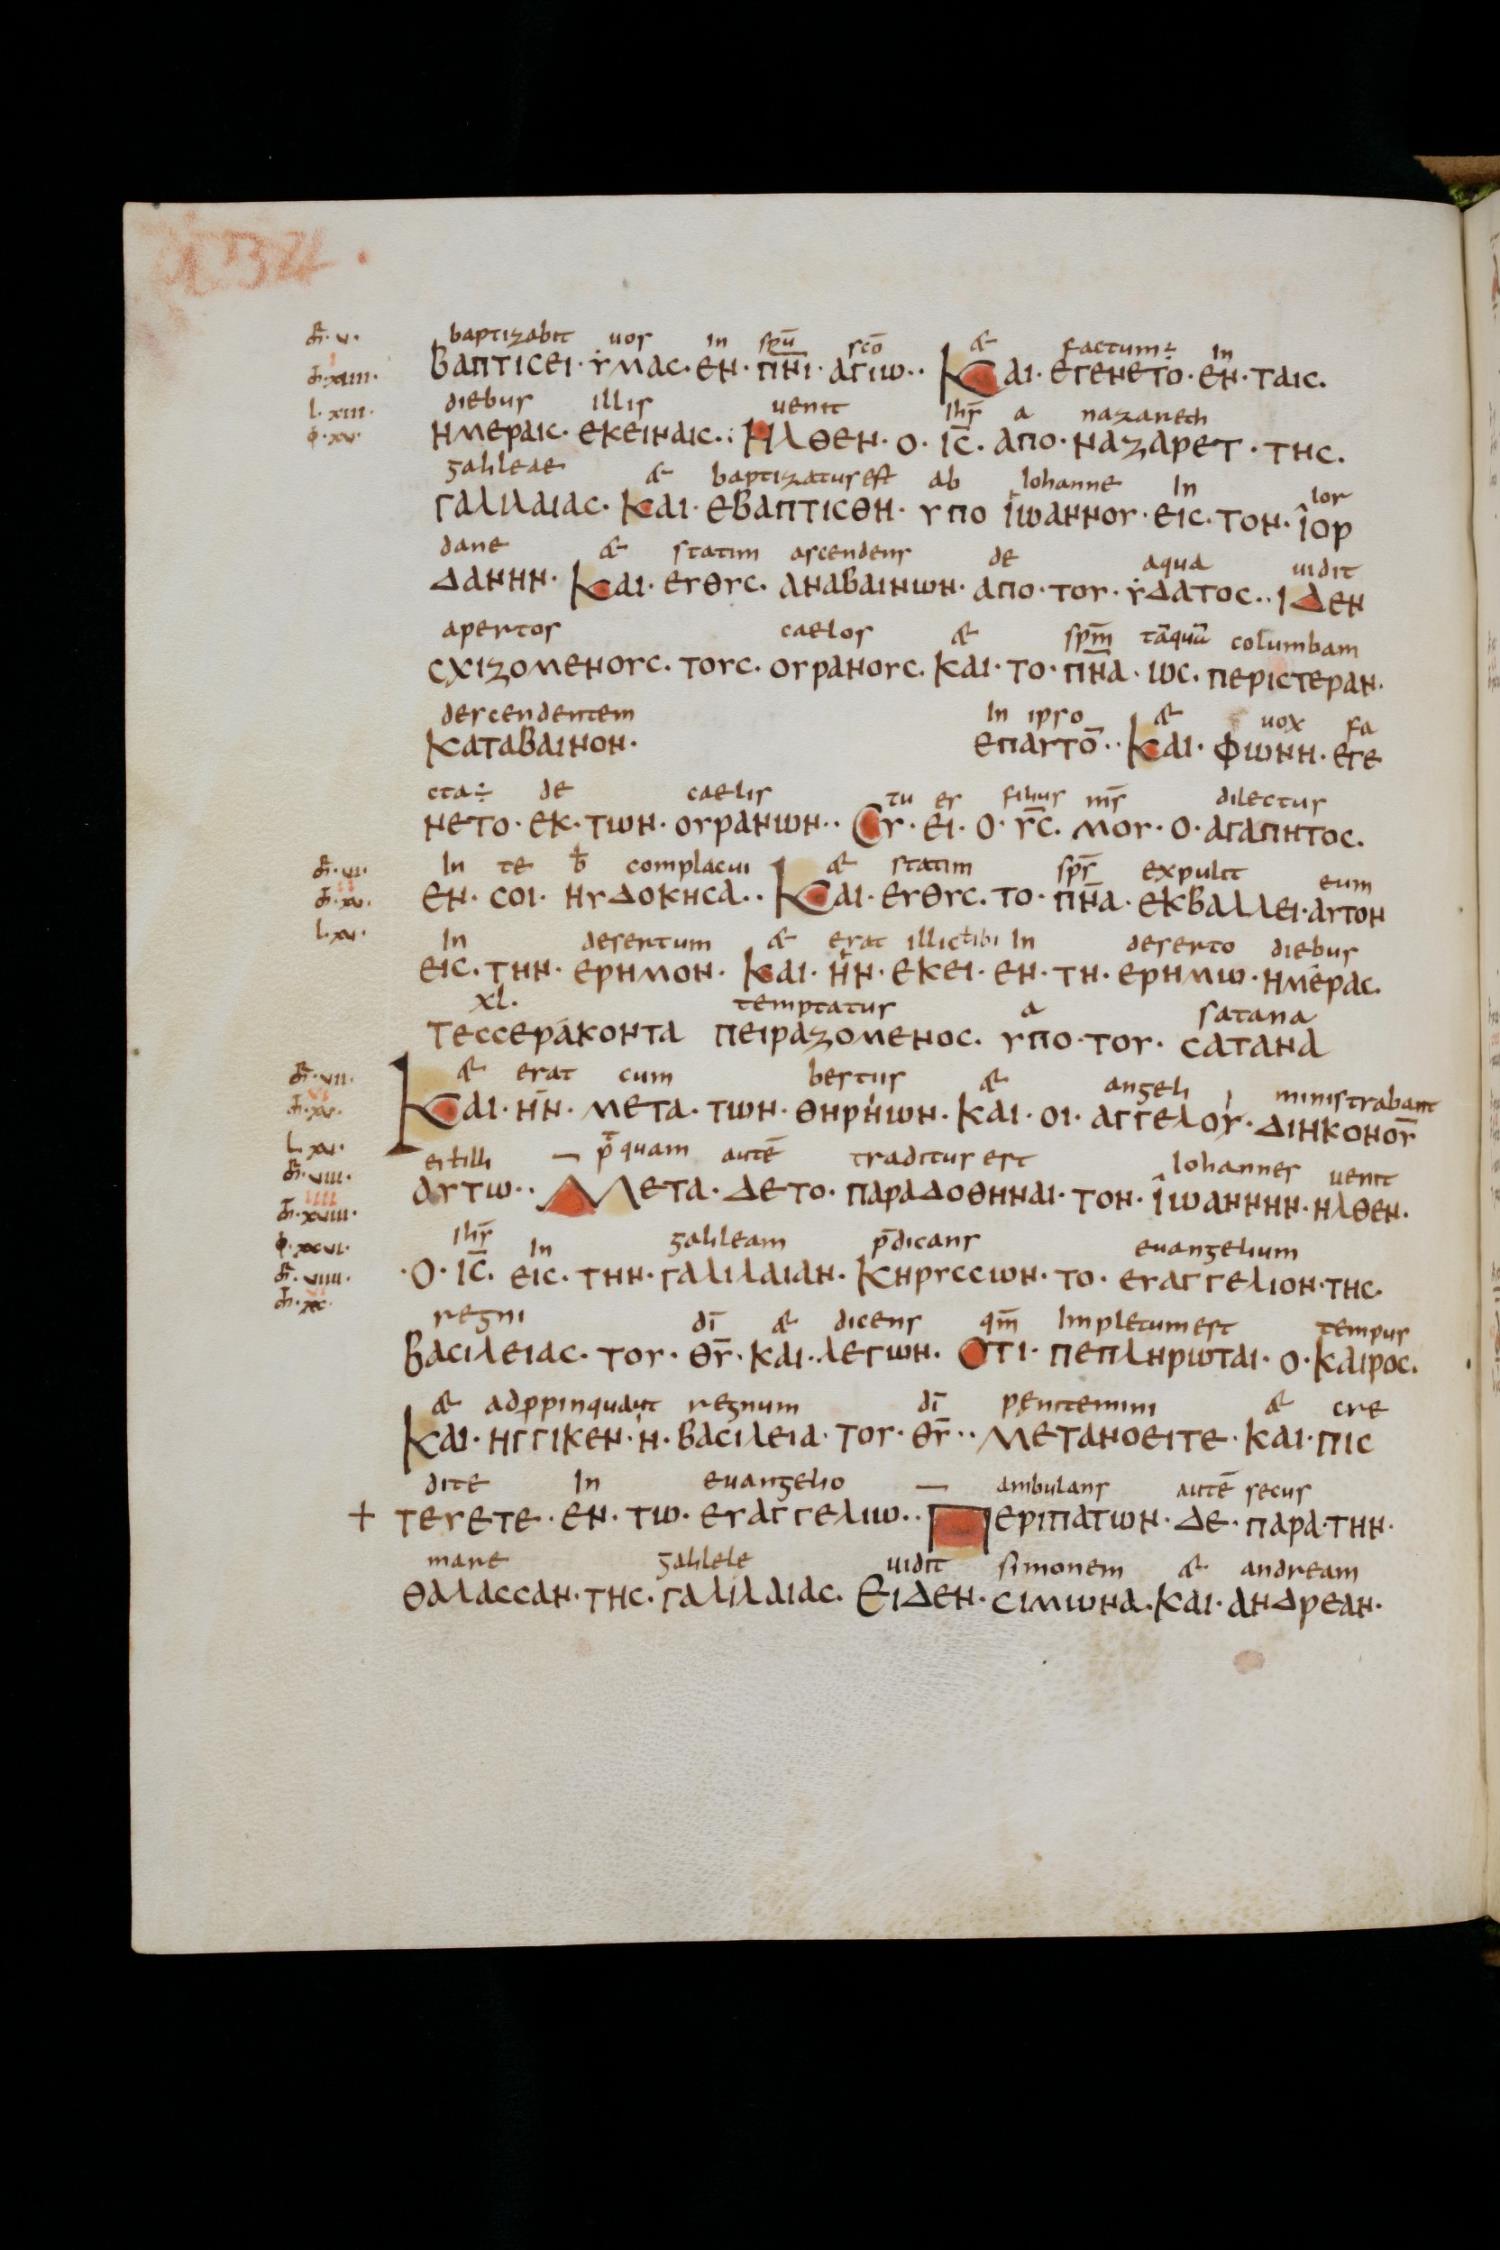 baptizabit uos in spū scō & factum÷ in
ΒΑΠΤΙСΕΙ· ΥΜΑС· ΕΝ· Π̅Ν̅Ι· ΑΓΙΩ·· ΚΑΙ· ΕΓΕΝΕΤΟ· ΕΝ· ΤΑΙС.
diebus illis uenit ihs̄ a nazareth
ΗΜΕΡΑΙС· ΕΚΕΙΝΑΙС·: ΗΛΘΕΝ· Ο· Ι̅С̅. ΑΠΟ· ΝΑΖΑΡΕΤ· ΤΗС.
galileae & baptizatus est ab iohanne in ior
ΓΑΛΙΛΑΙΑС· ΚΑΙ· ΕΒΑΠΤΙСΘΗ· ΥΠΟ ΙΩΑΝΝΟΥ· ΕΙС· ΤΟΝ· ΙΟΡ
dane & statim ascendens de aqua uidit
ΔΑΝΗΝ· ΚΑΙ· ΕΥΘΥС. ΑΝΑΒΑΙΝΩΝ· ΑΠΟ· ΤΟΥ· ΥΔΑΤΟС·· ΙΔΕΝ
apertos caelos & spm̄ tāquā columbam
СΧΙΖΟΜΕΝΟΥС. ΤΟΥС. ΟΥΡΑΝΟΥС. ΚΑΙ· ΤΟ· Π̅Ν̅Α· ΙΩС. ΠΕΡΙСΤΕΡΑΝ·
descendentem in ipso & uox fa
ΚΑΤΑΒΑΙΝΟΝ· ΕΠΑΥΤΟ̅·· ΚΑΙ· ΦΩΝΗ· ΕΓΕ
cta÷ de caelis tu es filius ms̄ dilectus
ΝΕΤΟ· ΕΚ· ΤΩΝ· ΟΥΡΑΝΩΝ·· СΥ· ΕΙ· Ο· Υ̅С̅. ΜΟΥ· Ο· ΑΓΑΠΗΤΟС.
in te ƀ complacui & statim sps̄ expulit eum
ΕΝ· СΟΙ· ΗΥΔΟΚΗСΑ·· ΚΑΙ· ΕΥΘΥС. ΤΟ· Π̅Ν̅Α· ΕΚΒΑΛΛΕΙ· ΑΥΤΟΝ
in desertum & erat illic ł ibi in deserto diebus
ΕΙС. ΤΗΝ· ΕΡΗΜΟΝ· ΚΑΙ· ΗΝ· ΕΚΕΙ· ΕΝ· ΤΗ· ΕΡΗΜΩ· ΗΜΕΡΑС.
xl. temptatus a satana
ΤΕССΕΡΑΚΟΝΤΑ ΠΕΙΡΑΖΟΜΕΝΟС. ΥΠΟ· ΤΟΥ· СΑΤΑΝΑ
& erat cum bestiis & angeli ministrabant
ΚΑΙ· ΗΝ· ΜΕΤΑ· ΤΩΝ· ΘΗΡΗΩΝ· ΚΑΙ· ΟΙ· ΑΓΓΕΛΟΥ· ΔΙΗΚΟΝΟΥ̅
ei ł illi p̄quam autē traditus est iohannes uenit
ΑΥΤΩ·· ΜΕΤΑ· ΔΕΤΟ· ΠΑΡΑΔΟΘΗΝΑΙ· ΤΟΝ· ΙΩΑΝΝΗΝ· ΗΛΘΕΝ·
ihs̄ in galileam p̄dicans euangelium
·Ο· Ι̅С̅. ΕΙС· ΤΗΝ· ΓΑΛΙΛΑΙΑΝ· ΚΗΡΥССΩΝ· ΤΟ· ΕΥΑΓΓΕΛΙΟΝ· ΤΗС.
regni dī & dicens qm̄ impletum est tempus
ΒΑСΙΛΕΙΑС· ΤΟΥ· Θ̅Υ̅· ΚΑΙ· ΛΕΓΩΝ· ΟΤΙ· ΠΕΠΛΗΡΩΤΑΙ· Ο· ΚΑΙΡΟС.
& adp̱pinquauit regnum dī penitemini & cre
ΚΑΙ· ΗΓΓΙΚΕΝ· Η· ΒΑСΙΛΕΙΑ· ΤΟΥ· Θ̅Υ̅·· ΜΕΤΑΝΟΕΙΤΕ· ΚΑΙ· ΠΙС
dite in euangelio ambulans autē secus
+ ΤΕΥΕΤΕ· ΕΝ· ΤΩ· ΕΥΑΓΓΕΛΙΩ·· ΠΕΡΙΠΑΤΩΝ· ΔΕ· ΠΑΡΑ· ΤΗΝ·
mare galilele uidit simonem & andream
ΘΑΛΑССΑΝ· ΤΗС. ΓΑΛΙΛΑΙΑС. ΕΙΔΕΝ· СΙΜΩΝΑ· ΚΑΙ· ΑΝΔΡΕΑΝ·